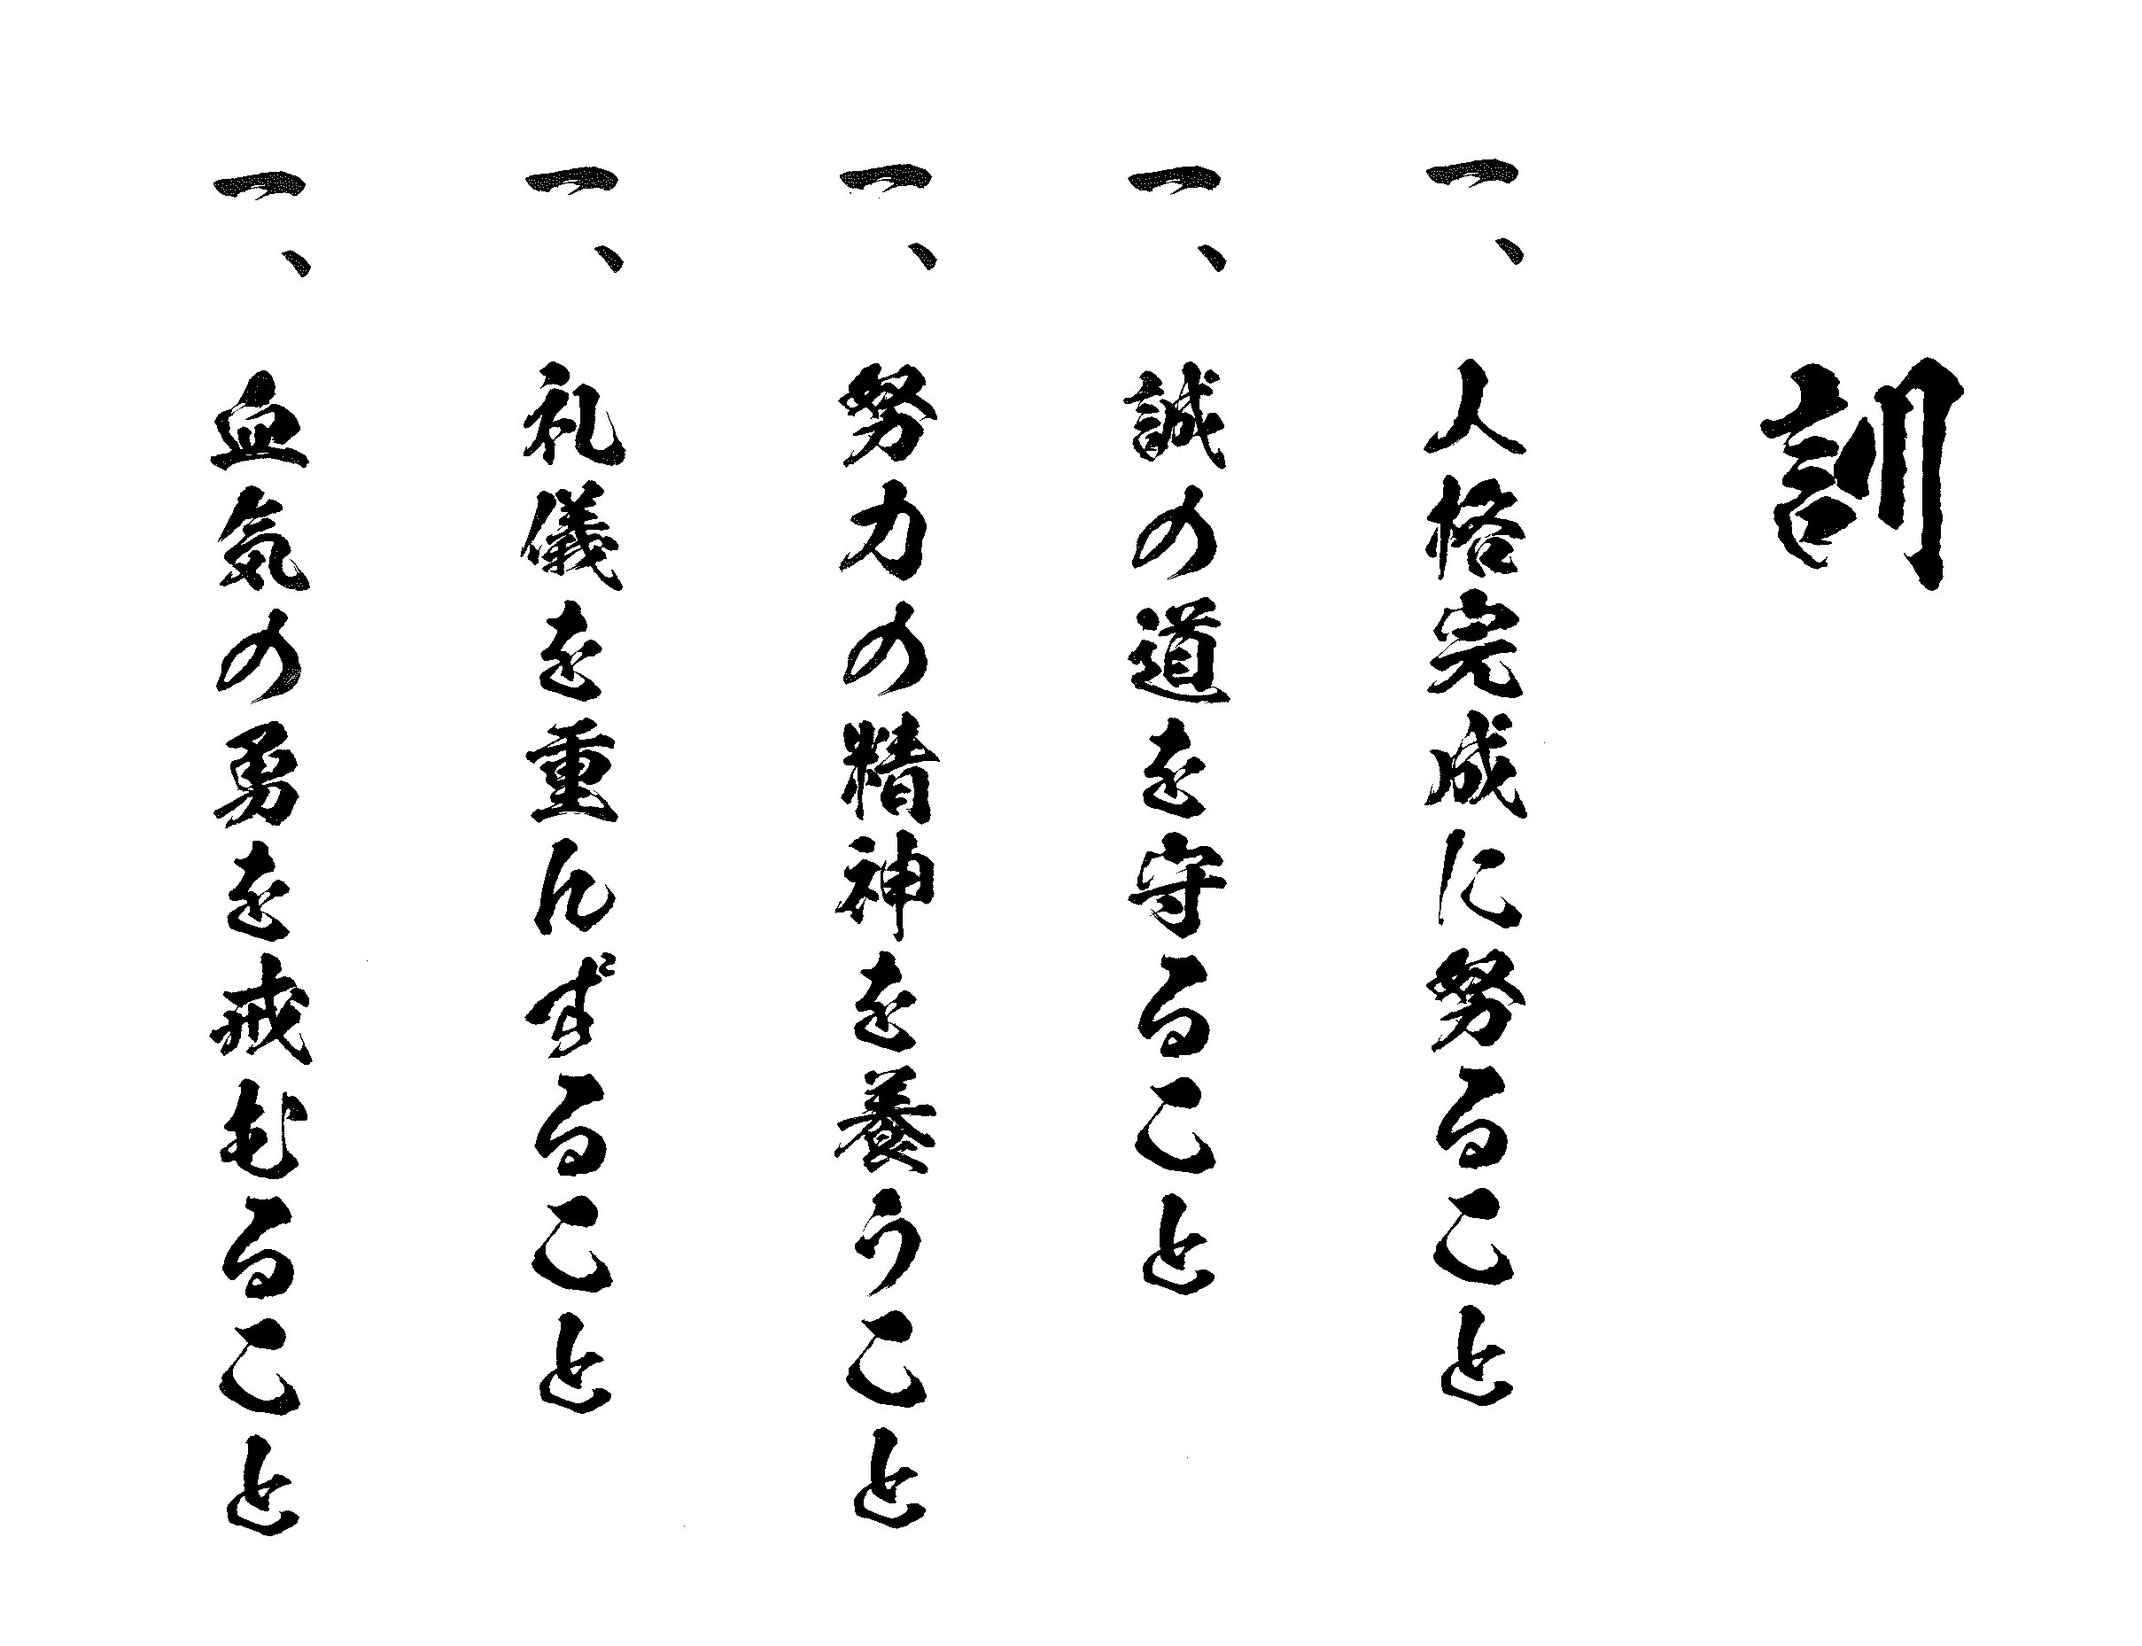 訓
一、人格完成に努ること
一、誠の道を守ること
一、努力の精神を養うこと
一、礼儀を重んずること
一、血気の勇を戒むること